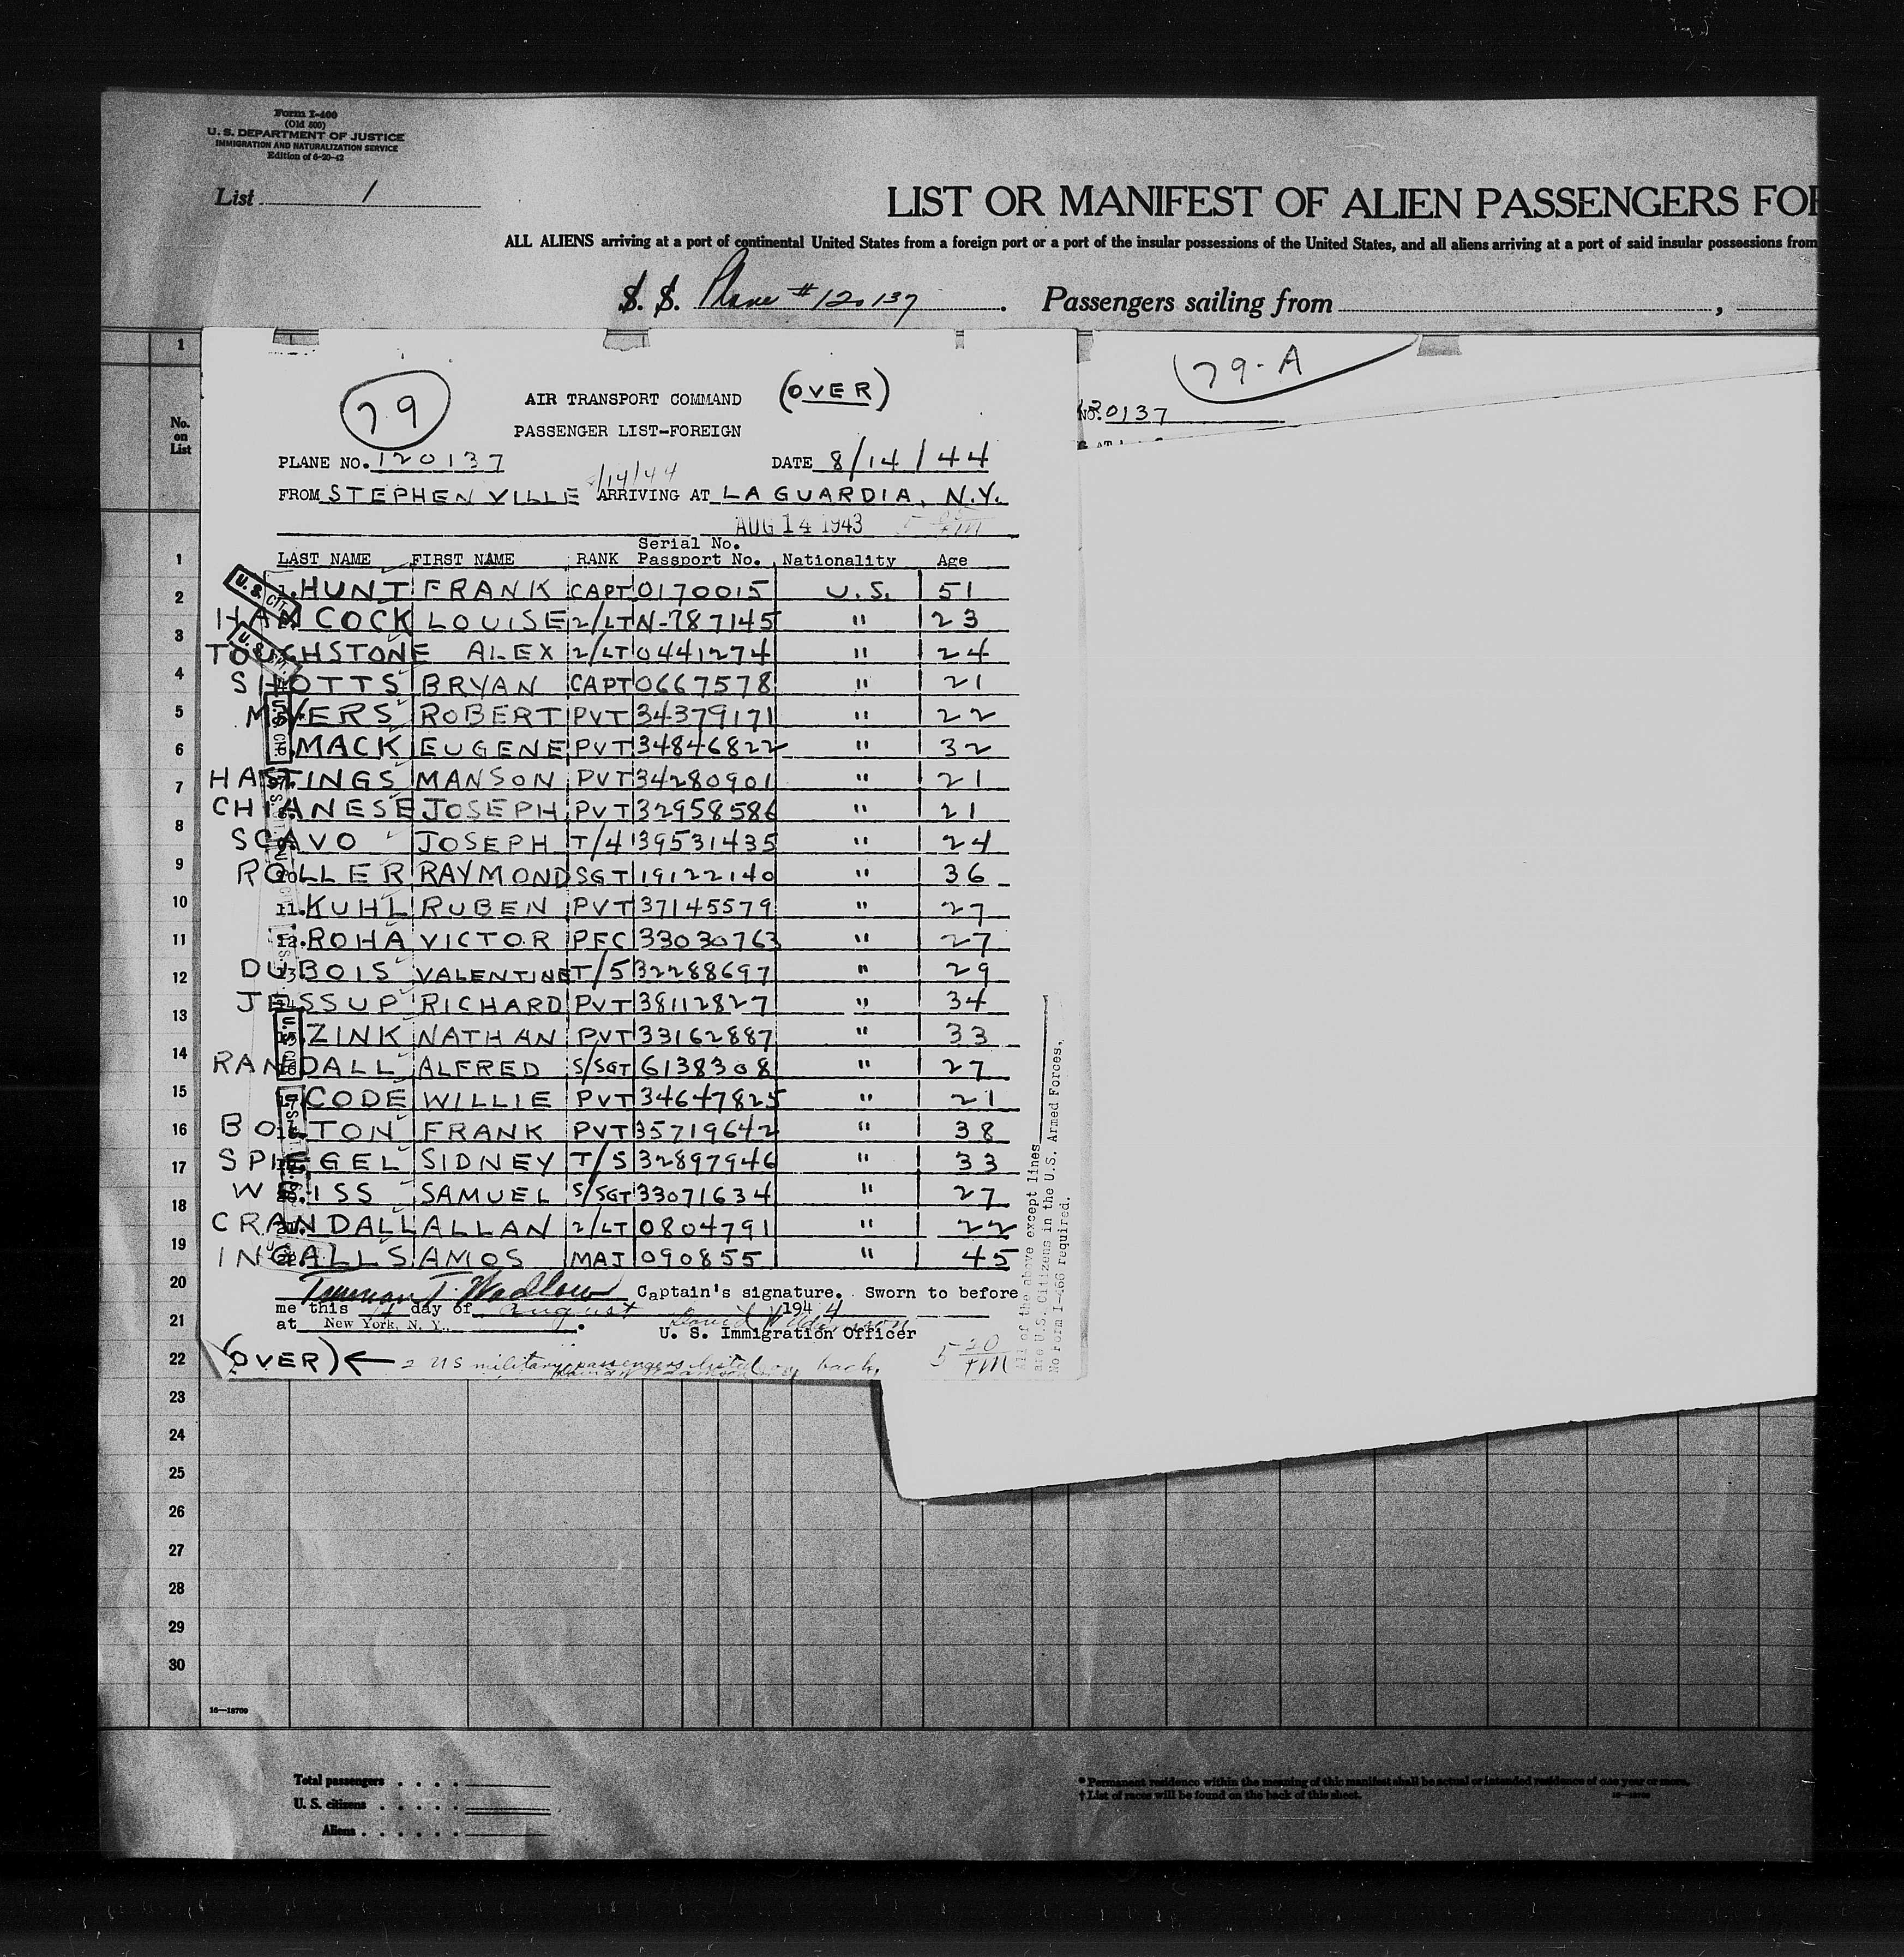 Form I-400
(Old 500)
U. S. DEPARTMENT OF JUSTICE
IMMIGRATION AND NATURALIZATION SERVICE
Edition of 6-20-42
List 1
LIST OR MANIFEST OF ALIEN PASSENGERS FOR
ALL ALIENS arriving at a port of continental United States from a foreign port or a port of the insular possessions of the United States, and all aliens arriving at a port of said insular possessions from
S. S. Plane # 120137. Passengers sailing from ,
79 AIR TRANSPORT COMMAND (OVER)
PASSENGER LIST-FOREIGN
79-A
NO. 20137
PLANE NO. 120137 DATE 8/14/44
8/14/44
FROM STEPHENVILLE ARRIVING AT LA GUARDIA, N.Y.
AUG 14 1943
LAST NAME FIRST NAME RANK Serial No. Passport No. Nationality Age
1. HUNT FRANK CAPT 0170015 U.S. 51
HANCOCK LOUISE 2/LT N-787145 " 23
TOUCHSTONE ALEX 2/LT 0441274 " 24
SHOTTS BRYAN CAPT 0667578 " 21
MYERS ROBERT PVT 34379171 " 22
MACK EUGENE PVT 34846822 " 32
HASTINGS MANSON PVT 34280901 " 21
CHIANESE JOSEPH PVT 32958586 " 21
SCAVO JOSEPH T/4 39531435 " 24
ROLLER RAYMOND SGT 19122140 " 36
11. KUHL RUBEN PVT 37145579 " 27
12. ROHA VICTOR PFC 33030763 " 27
DUBOIS VALENTINE T/5 32288697 " 29
JESSUP RICHARD PVT 38112827 " 34
ZINK NATHAN PVT 33162887 " 33
RANDALL ALFRED S/SGT 6138308 " 27
17. CODE WILLIE PVT 34647825 " 21
BOLTON FRANK PVT 35719642 " 38
SPIEGEL SIDNEY T/5 32897946 " 33
WEISS SAMUEL S/SGT 33071634 " 27
CRANDALL ALLAN 2/LT 0804791 " 22
INGALLS AMOS MAJ 090855 " 45
Truman T. Wadlow Captain's signature. Sworn to before
me this 14 day of August 1944
at New York, N. Y. .
U. S. Immigration Officer
(OVER) ← 2 US military passengers listed on back. 5 20 PM
All of the above except lines
are U.S. Citizens in the U.S. Armed Forces,
No Form I-466 required.
No. on List
1
1
2
3
4
5
6
7
8
9
10
11
12
13
14
15
16
17
18
19
20
21
22
23
24
25
26
27
28
29
30
16—18709
Total passengers . . . .
U. S. citizens . . . . .
Aliens . . . . . .
* Permanent residence within the meaning of this manifest shall be actual or intended residence of one year or more.
† List of races will be found on the back of this sheet.
16—18709